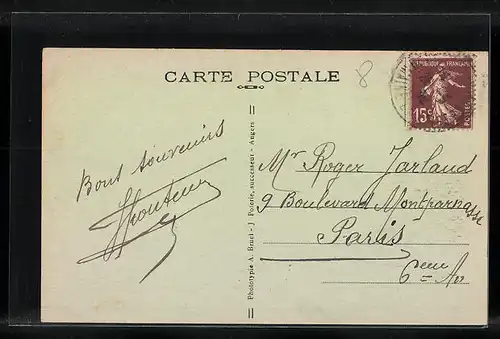 CARTE POSTALE
8
REPUBLIQUE FRANÇAISE
15c
POSTES
Bons souvenirs
Phototypie A. Bruel - J. Poterie, successeur - Angers
Mr Roger Jarland
9 Boulevard Montparnasse
Paris
6eme Ar